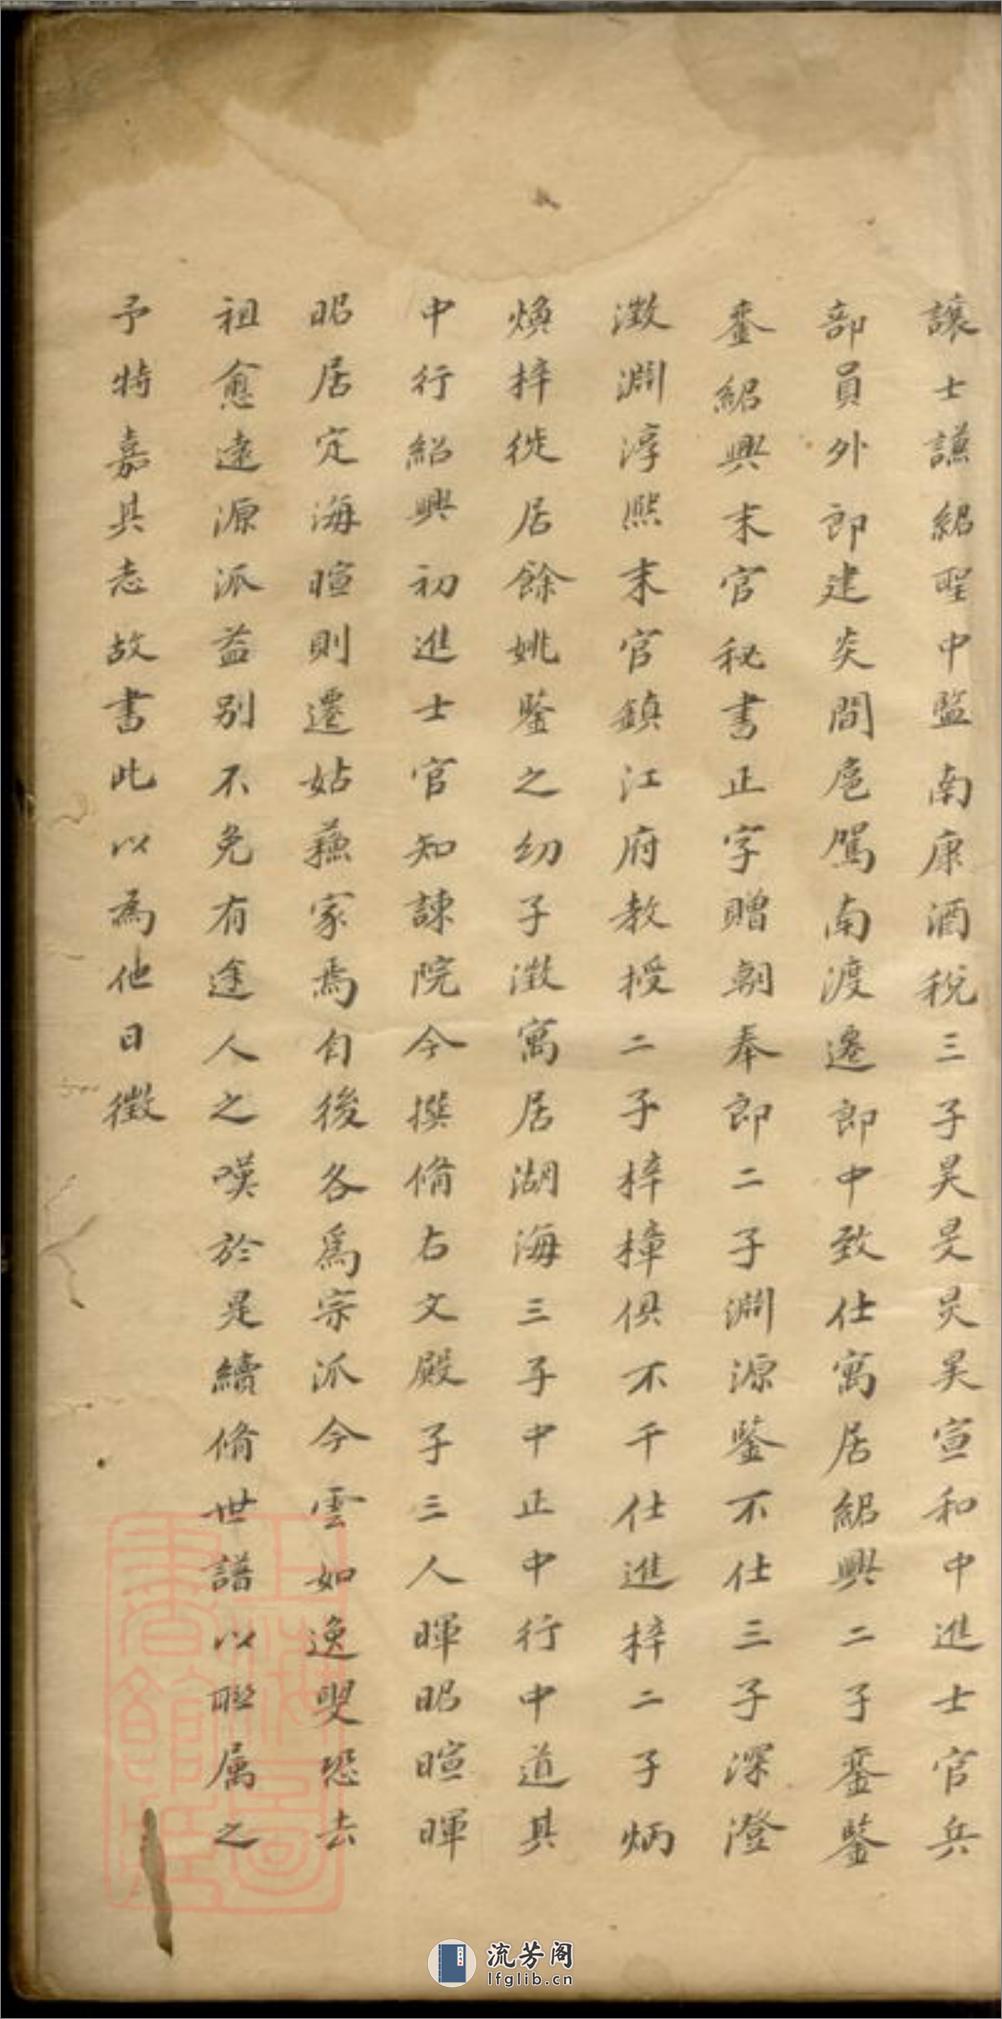 讓士謙紹聖中監南康酒稅三子昊旻炅昊宣和中進士官兵
部員外郎建炎間扈駕南渡遷郎中致仕寓居紹興二子銮鑒
銮紹興末官秘書正字贈朝奉郎二子淵源鑒不仕三子深澄
澂淵淳熙末官鎮江府教授二子梓樟俱不干仕進梓二子炳
煥梓徙居餘姚鑒之幼子澂寓居湖海三子中正中行中道其
中行紹興初進士官知諫院今撰脩右文殿子三人暉昭暄暉
昭居定海暄則遷姑蘓家焉自後各爲宗派今雲如逸叟恐去
祖愈遠源派益別不免有途人之嘆於是續脩世譜以聯属之
予特嘉其志故書此以為他日徵
上海圖書館藏
流芳阁
lfglib.cn